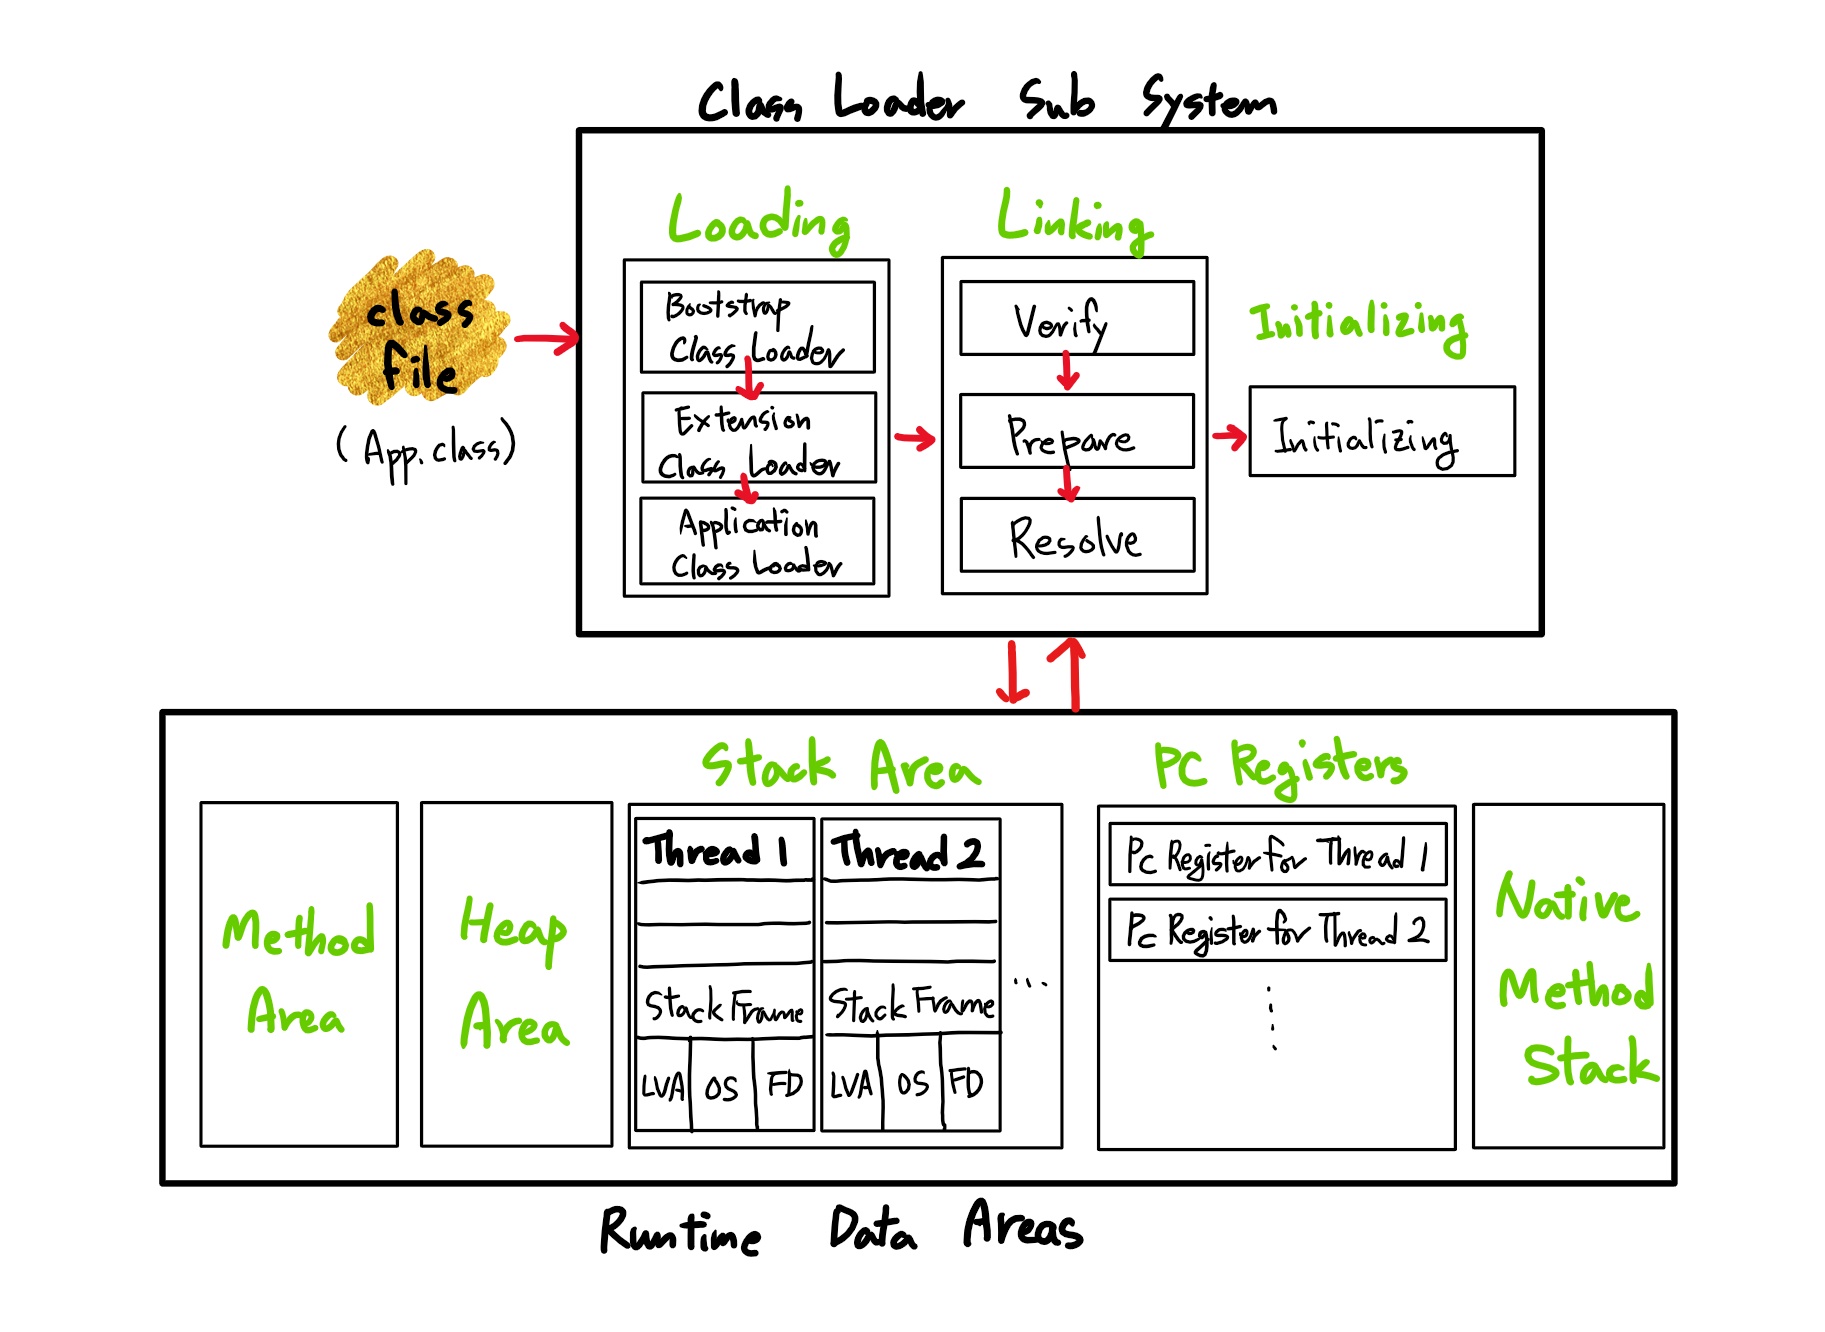 Class Loader Sub System
class
file
(App.class)
Loading
Bootstrap
Class Loader
Extension
Class Loader
Application
Class Loader
Linking
Verify
Prepare
Resolve
Initializing
Initializing
Method
Area
Heap
Area
Stack Area
Thread 1
Stack Frame
LVA OS FD
Thread 2
Stack Frame
LVA OS FD
...
PC Registers
PC Register for Thread 1
PC Register for Thread 2
Native
Method
Stack
Runtime Data Areas